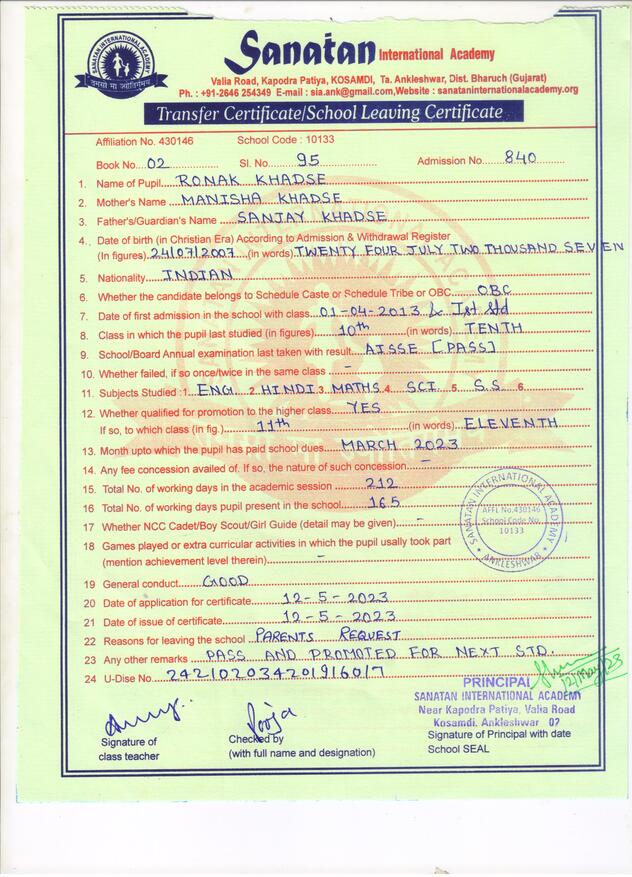 SANATAN INTERNATIONAL ACADEMY
तमसो मा ज्योतिर्गमय
Sanatan International Academy
Valia Road, Kapodra Patiya, KOSAMDI, Ta. Ankleshwar, Dist. Bharuch (Gujarat)
Ph. : +91-2646 254349 E-mail : sia.ank@gmail.com,Website : sanataninternationalacademy.org
Transfer Certificate/School Leaving Certificate
Affiliation No. 430146 School Code : 10133
Book No. 02 Sl. No. 95 Admission No. 840
1. Name of Pupil RONAK KHADSE
2. Mother's Name MANISHA KHADSE
3. Father's/Guardian's Name SANJAY KHADSE
4. Date of birth (in Christian Era) According to Admission & Withdrawal Register
(In figures) 24/07/2007 (in words) TWENTY FOUR JULY TWO THOUSAND SEVEN
5. Nationality INDIAN
6. Whether the candidate belongs to Schedule Caste or Schedule Tribe or OBC OBC
7. Date of first admission in the school with class 01-04-2013 & Ist Std
8. Class in which the pupil last studied (in figures) 10th (in words) TENTH
9. School/Board Annual examination last taken with result AISSE [PASS]
10. Whether failed, if so once/twice in the same class -
11. Subjects Studied :1 ENG. 2. HINDI 3. MATHS 4. SCI. 5. S.S 6.
12. Whether qualified for promotion to the higher class YES
If so, to which class (in fig.) 11th (in words) ELEVENTH
13. Month upto which the pupil has paid school dues MARCH 2023
14. Any fee concession availed of. If so, the nature of such concession -
15. Total No. of working days in the academic session 212
16 Total No. of working days pupil present in the school 165
17 Whether NCC Cadet/Boy Scout/Girl Guide (detail may be given) -
18 Games played or extra curricular activities in which the pupil usally took part
(mention achievement level therein) -
19 General conduct GOOD
20 Date of application for certificate 12-5-2023
21 Date of issue of certificate 12-5-2023
22 Reasons for leaving the school PARENTS REQUEST
23 Any other remarks PASS AND PROMOTED FOR NEXT STD.
24 U-Dise No 242102034201916017
SANATAN INTERNATIONAL ACADEMY
AFFL No.430146
School Code No.
10133
ANKLESHWAR
12/May/23
PRINCIPAL
SANATAN INTERNATIONAL ACADEMY
Near Kapodra Patiya, Valia Road
Kosamdi, Ankleshwar 02
Pooja
Signature of
class teacher
Checked by
(with full name and designation)
Signature of Principal with date
School SEAL